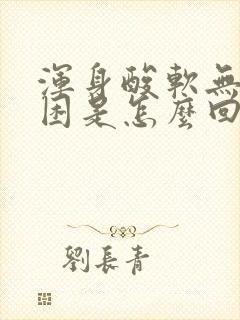 渾身酸軟無
困是怎麼回
劉長青